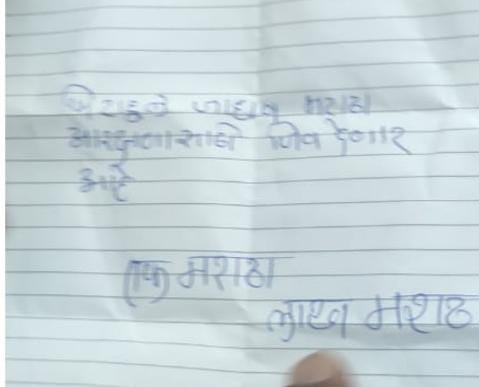 मी राहुल जाधव मराठा
आरक्षणासाठी जिव देणार
आहे
एक मराठा
लाख मराठ